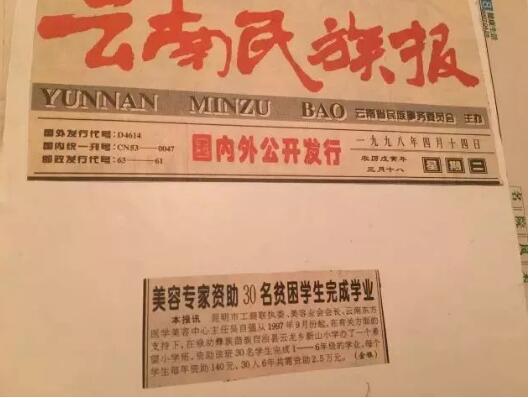 云南民族报
YUNNAN MINZU BAO 云南省民族事务委员会 主办
国外发行代号:D4614
国内统一刊号:CN53—0047
邮政发行代号:63—61
国内外公开发行
一九九八年四月十四日
农历戊寅年
三月十八
星期二
美容专家资助30名贫困学生完成学业
本报讯 昆明市工商联执委、美容业会会长、云南东方
医学美容中心主任吴自强从1997年9月份起,在有关方面的
支持下,在禄劝彝族苗族自治县云龙乡新山小学办了一个希
望小学班,资助该班30名学生完成1——6年级的学业,每个
学生每年资助140元,30人6年共需资助2.5万元。